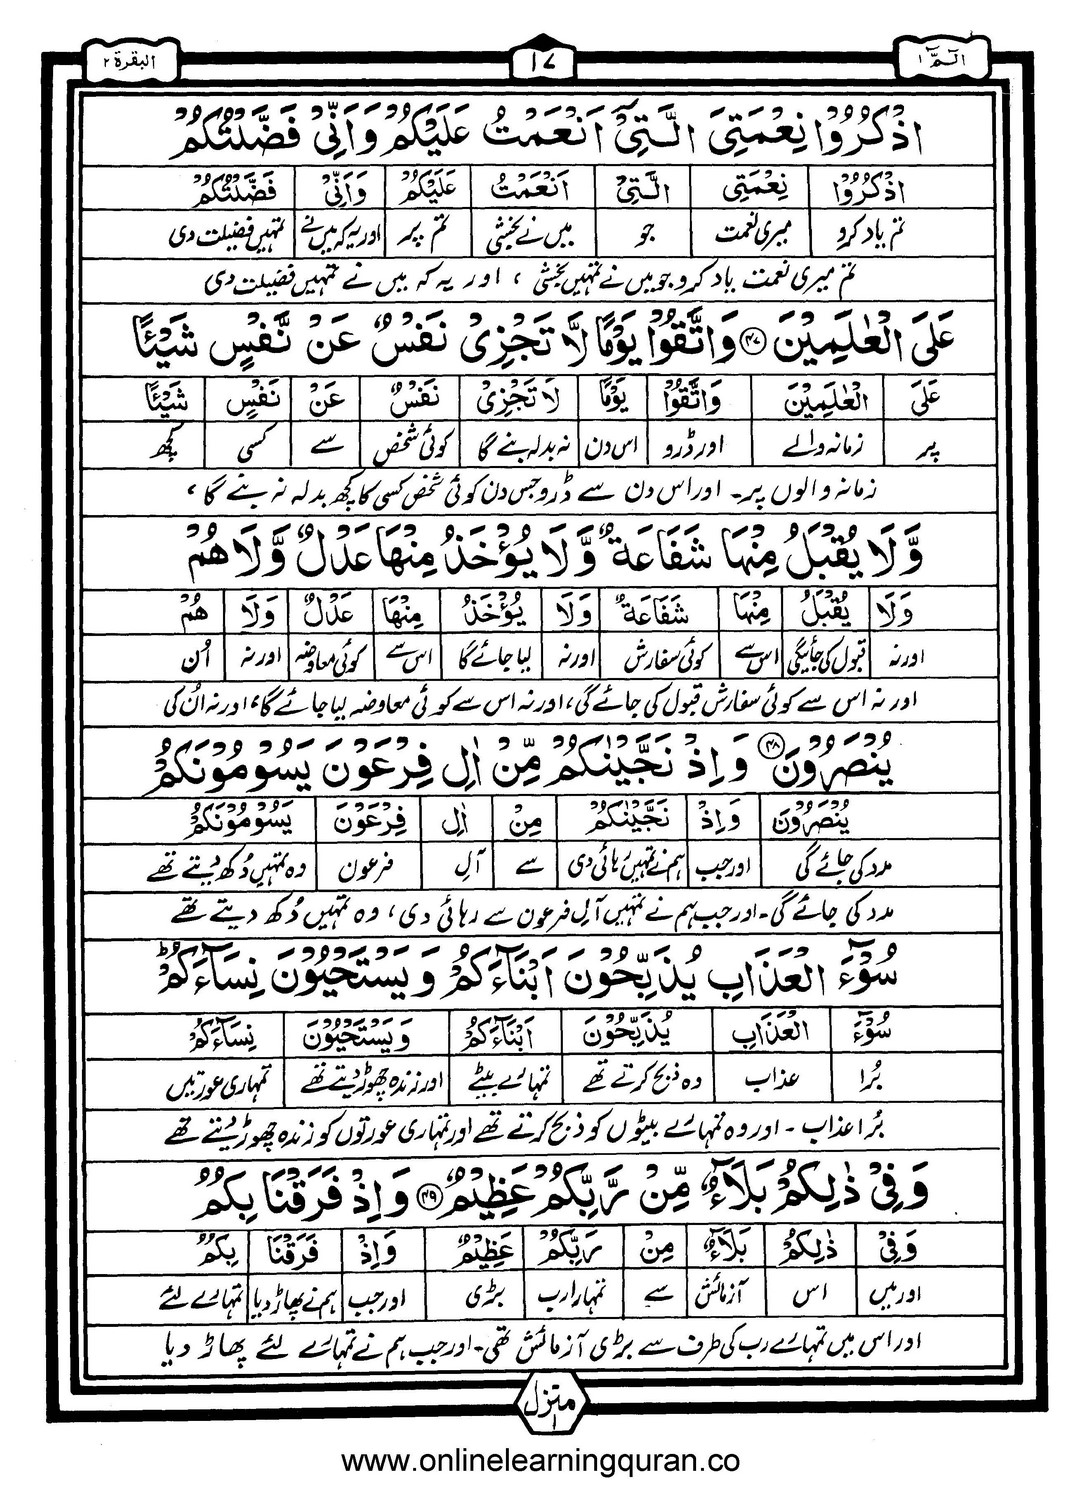 الٓمّٓ ۱
۱۷
البقرة ۲
اذْكُرُوْا نِعْمَتِىَ الَّتِىْٓ اَنْعَمْتُ عَلَيْكُمْ وَاَنِّىْ فَضَّلْتُكُمْ
اذْكُرُوْا نِعْمَتِىَ الَّتِىْٓ اَنْعَمْتُ عَلَيْكُمْ وَاَنِّىْ فَضَّلْتُكُمْ
تم یاد کرو میری نعمت جو میں نے بخشی تم پر اور یہ کہ میں نے تمہیں فضیلت دی
تم میری نعمت یاد کرو جو میں نے تمہیں بخشی ، اور یہ کہ میں نے تمہیں فضیلت دی
عَلَى الْعٰلَمِيْنَ ۴۷ وَاتَّقُوْا يَوْمًا لَّا تَجْزِىْ نَفْسٌ عَنْ نَّفْسٍ شَيْـًٔا
عَلَى الْعٰلَمِيْنَ وَاتَّقُوْا يَوْمًا لَا تَجْزِىْ نَفْسٌ عَنْ نَفْسٍ شَيْـًٔا
پر زمانہ والے اور ڈرو اس دن نہ بدلہ بنے گا کوئی شخص سے کسی کچھ
زمانہ والوں پر۔ اور اس دن سے ڈرو جس دن کوئی شخص کسی کا کچھ بدلہ نہ بنے گا ،
وَّلَا يُقْبَلُ مِنْهَا شَفَاعَةٌ وَّلَا يُؤْخَذُ مِنْهَا عَدْلٌ وَّلَا هُمْ
وَلَا يُقْبَلُ مِنْهَا شَفَاعَةٌ وَلَا يُؤْخَذُ مِنْهَا عَدْلٌ وَلَا هُمْ
اور نہ قبول کی جائیگی اس سے کوئی سفارش اور نہ لیا جائے گا اس سے کوئی معاوضہ اور نہ اُن
اور نہ اس سے کوئی سفارش قبول کی جائے گی، اور نہ اس سے کوئی معاوضہ لیا جائے گا، اور نہ اُن کی
يُنْصَرُوْنَ ۴۸ وَاِذْ نَجَّيْنٰكُمْ مِّنْ اٰلِ فِرْعَوْنَ يَسُوْمُوْنَكُمْ
يُنْصَرُوْنَ وَاِذْ نَجَّيْنٰكُمْ مِنْ اٰلِ فِرْعَوْنَ يَسُوْمُوْنَكُمْ
مدد کی جائے گی اور جب ہم نے تمہیں رہائی دی سے آلِ فرعون وہ تمہیں دُکھ دیتے تھے
مدد کی جائے گی۔ اور جب ہم نے تمہیں آلِ فرعون سے رہائی دی ، وہ تمہیں دُکھ دیتے تھے
سُوْٓءَ الْعَذَابِ يُذَبِّحُوْنَ اَبْنَآءَكُمْ وَيَسْتَحْيُوْنَ نِسَآءَكُمْ ؕ
سُوْٓءَ الْعَذَابِ يُذَبِّحُوْنَ اَبْنَآءَكُمْ وَيَسْتَحْيُوْنَ نِسَآءَكُمْ
بُرا عذاب وہ ذبح کرتے تھے تمہارے بیٹے اور زندہ چھوڑ دیتے تھے تمہاری عورتیں
بُرا عذاب ۔ اور وہ تمہارے بیٹوں کو ذبح کرتے تھے اور تمہاری عورتوں کو زندہ چھوڑ دیتے تھے
وَفِىْ ذٰلِكُمْ بَلَآءٌ مِّنْ رَّبِّكُمْ عَظِيْمٌ ۴۹ وَاِذْ فَرَقْنَا بِكُمُ
وَفِىْ ذٰلِكُمْ بَلَآءٌ مِنْ رَبِّكُمْ عَظِيْمٌ وَاِذْ فَرَقْنَا بِكُمُ
اور میں اس آزمائش سے تمہارا رب بڑی اور جب ہم نے پھاڑ دیا تمہارے لئے
اور اس میں تمہارے رب کی طرف سے بڑی آزمائش تھی۔ اور جب ہم نے تمہارے لئے پھاڑ دیا
منزل ۱
www.onlinelearningquran.co